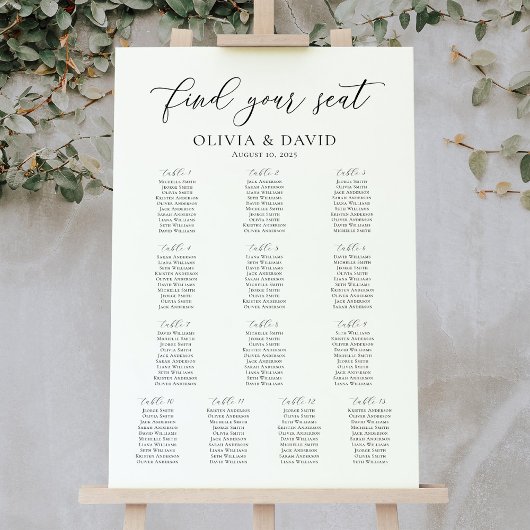 find your seat
OLIVIA & DAVID
AUGUST 10, 2025
table 1
MICHELLE SMITH
JEORGE SMITH
OLIVIA SMITH
KRISTEN ANDERSON
OLIVER ANDERSON
JACK ANDERSON
SARAH ANDERSON
LIANA WILLIAMS
SETH WILLIAMS
DAVID WILLIAMS
table 2
JACK ANDERSON
SARAH ANDERSON
LIANA WILLIAMS
SETH WILLIAMS
DAVID WILLIAMS
MICHELLE SMITH
JEORGE SMITH
OLIVIA SMITH
KRISTEN ANDERSON
OLIVER ANDERSON
table 3
JEORGE SMITH
OLIVIA SMITH
JACK ANDERSON
SARAH ANDERSON
LIANA WILLIAMS
SETH WILLIAMS
KRISTEN ANDERSON
OLIVER ANDERSON
DAVID WILLIAMS
MICHELLE SMITH
table 4
SARAH ANDERSON
LIANA WILLIAMS
SETH WILLIAMS
KRISTEN ANDERSON
OLIVER ANDERSON
DAVID WILLIAMS
MICHELLE SMITH
JEORGE SMITH
OLIVIA SMITH
JACK ANDERSON
table 5
LIANA WILLIAMS
SETH WILLIAMS
KRISTEN ANDERSON
OLIVER ANDERSON
DAVID WILLIAMS
MICHELLE SMITH
JEORGE SMITH
OLIVIA SMITH
JACK ANDERSON
SARAH ANDERSON
table 6
LIANA WILLIAMS
SETH WILLIAMS
DAVID WILLIAMS
MICHELLE SMITH
JEORGE SMITH
OLIVIA SMITH
JACK ANDERSON
SARAH ANDERSON
KRISTEN ANDERSON
OLIVER ANDERSON
table 7
DAVID WILLIAMS
MICHELLE SMITH
JEORGE SMITH
OLIVIA SMITH
JACK ANDERSON
SARAH ANDERSON
LIANA WILLIAMS
SETH WILLIAMS
KRISTEN ANDERSON
OLIVER ANDERSON
table 8
MICHELLE SMITH
JEORGE SMITH
OLIVIA SMITH
JACK ANDERSON
SARAH ANDERSON
LIANA WILLIAMS
SETH WILLIAMS
KRISTEN ANDERSON
OLIVER ANDERSON
DAVID WILLIAMS
table 9
SETH WILLIAMS
KRISTEN ANDERSON
OLIVER ANDERSON
DAVID WILLIAMS
MICHELLE SMITH
JEORGE SMITH
OLIVIA SMITH
JACK ANDERSON
SARAH ANDERSON
LIANA WILLIAMS
table 10
JEORGE SMITH
OLIVIA SMITH
JACK ANDERSON
SARAH ANDERSON
DAVID WILLIAMS
MICHELLE SMITH
LIANA WILLIAMS
SETH WILLIAMS
KRISTEN ANDERSON
OLIVER ANDERSON
table 11
KRISTEN ANDERSON
OLIVER ANDERSON
JACK ANDERSON
SARAH ANDERSON
DAVID WILLIAMS
MICHELLE SMITH
JEORGE SMITH
LIANA WILLIAMS
SETH WILLIAMS
OLIVIA SMITH
table 12
JEORGE SMITH
OLIVIA SMITH
SETH WILLIAMS
KRISTEN ANDERSON
OLIVER ANDERSON
DAVID WILLIAMS
MICHELLE SMITH
JACK ANDERSON
SARAH ANDERSON
LIANA WILLIAMS
table 13
KRISTEN ANDERSON
OLIVER ANDERSON
JACK ANDERSON
SARAH ANDERSON
LIANA WILLIAMS
DAVID WILLIAMS
MICHELLE SMITH
JEORGE SMITH
OLIVIA SMITH
SETH WILLIAMS